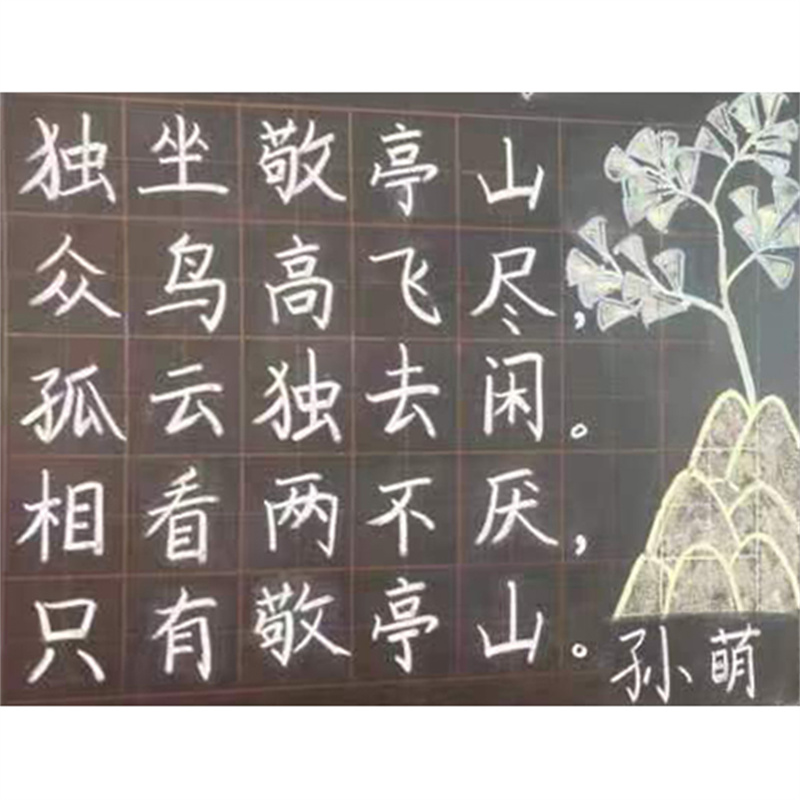 独坐敬亭山
众鸟高飞尽，
孤云独去闲。
相看两不厌，
只有敬亭山。
孙萌